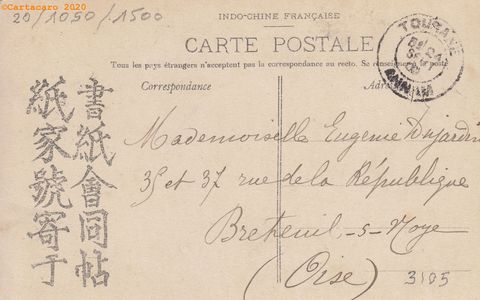 ©Cartacaro 2020
20/1050/1500
INDO-CHINE FRANÇAISE
CARTE POSTALE
Tous les pays étrangers n'acceptent pas la correspondance au recto. Se renseigner à la poste
Correspondance
TOURANE
ANNAM
書紙會同帖
紙家號寄于
Mademoiselle Eugenie Dujardin
35 et 37 rue de la République
Breteuil-s-Noye
(Oise)
3105